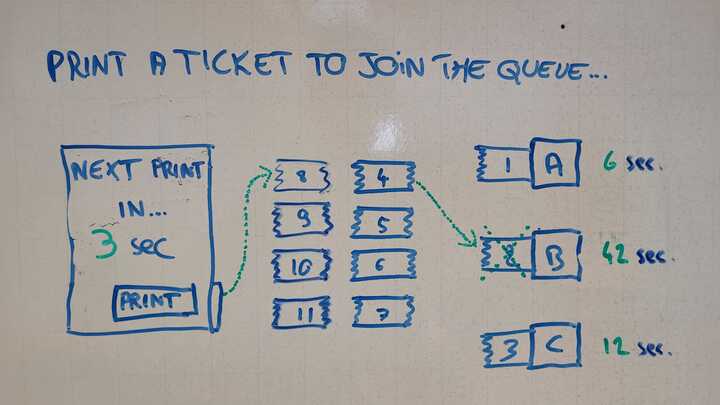 PRINT A TICKET TO JOIN THE QUEUE...
NEXT PRINT
IN...
3 sec
PRINT
8
9
10
11
4
5
6
7
1 A 6 sec.
B 42 sec.
3 C 12 sec.